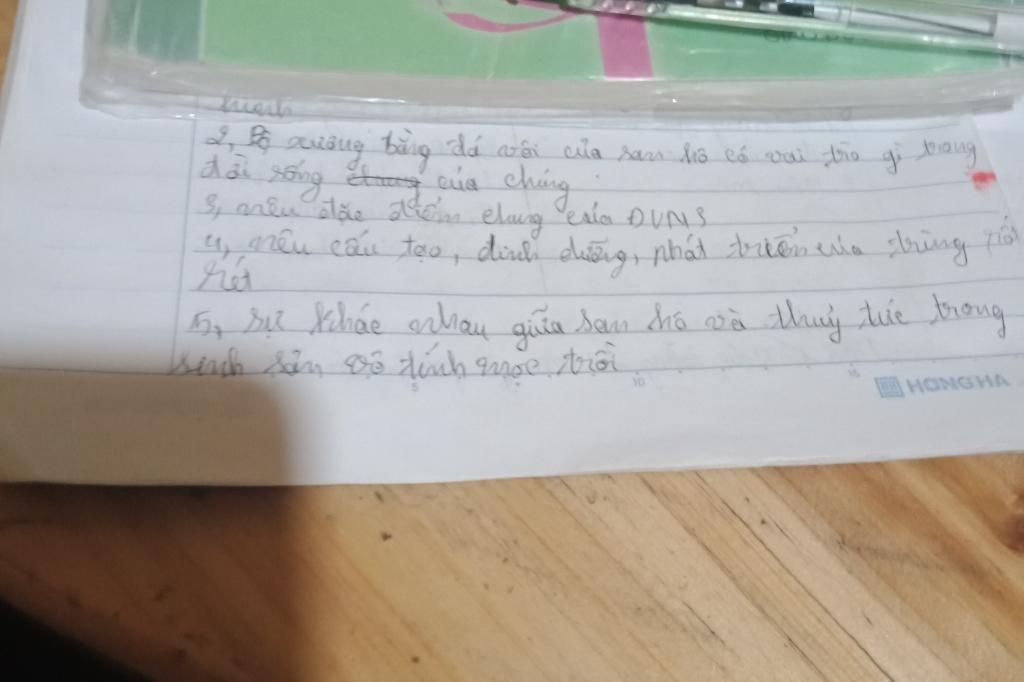 2, Bộ xương bằng đá vôi của san hô có vai trò gì trong
đời sống chung của chúng
3, nêu đặc điểm chung của ĐVNS
4, nêu cấu tạo, dinh dưỡng, phát triển của trùng sốt
rét
5, sự khác nhau giữa san hô và thuỷ tức trong
sinh sản vô tính mọc trồi
5 10 15
HONGHA